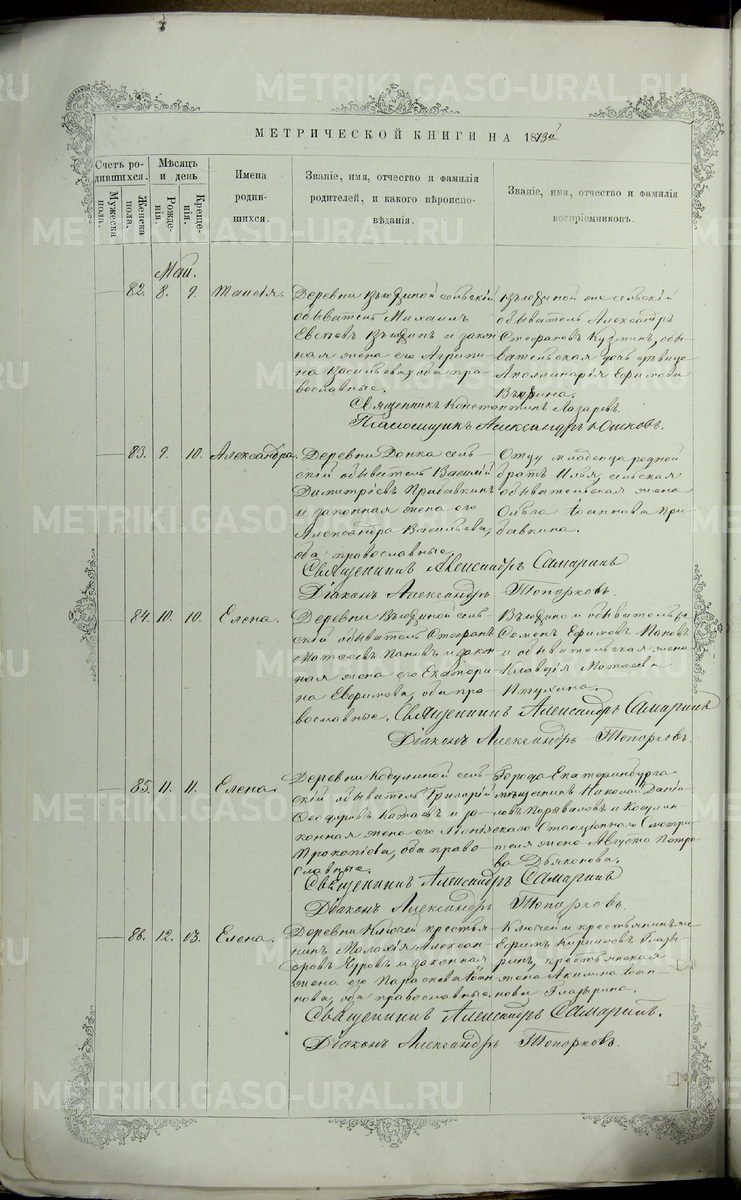 METRIKI.GASO-URAL.RU
МЕТРИЧЕСКОЙ КНИГИ НА 1873й
Счетъ ро-
дившихся.
Мужеска
пола.
Женска
пола.
Мѣсяцъ
и день
Рожде-
нія.
Креще-
нія.
Имена
родив-
шихся.
Званіе, имя, отчество и фамилія
родителей, и какого вѣроиспо-
вѣданія.
Званіе, имя, отчество и фамилія
воспріемниковъ.
Май.
82. 8. 9. Таисія.
Деревни сельскій
обыватель Михаилъ
и закон
ная жена его Агрипи
на Васильева, оба пра
вославные.
сельскій
обыватель Александръ
Стефановъ обы
вательская дочь девица
Аполлинарія Ефимова
Священникъ Константинъ Лазаревъ.
Псаломщикъ Александръ
83. 9. 10. Александра.
Деревни сель
скій обыватель Василій
Димитріевъ Прибавкинъ
и законная жена его
Александра Васильева,
оба православные.
Отцу младенца родной
братъ Илья, сельская
обывательская жена
Ольга Іоаннова При
бавкина.
Священникъ Александръ Самаринъ
Діаконъ Александръ Топорковъ.
84. 10. 10. Елена.
Деревни сель
скій обыватель Стефанъ
Матѳеевъ Пановъ и закон
ная жена его Екатери
на Ефимова, оба пра
вославные.
Семенъ Ефимовъ Пановъ
и обывательская жена
Клавдія Матѳеева
Священникъ Александръ Самаринъ
Діаконъ Александръ Топорковъ.
85. 11. 11. Елена.
Деревни сель
скій обыватель Григорій
Ѳеодоровъ и за
конная жена его
Прокопіева, оба право
славные.
Города Екатеринбурга
мѣщанинъ Николай Даніи
ловъ и
Станціоннаго Смотри
теля жена Августа Петро
ва Дьяконова.
Священникъ Александръ Самаринъ
Діаконъ Александръ Топорковъ.
86. 12. 13. Елена.
Деревни Ключей крестья
нинъ
и законная
жена его Параскева Іоан
нова, оба православные.
Ключей и крестьянинъ
Ефимъ
крестьянская
жена Акилина Іоан
нова
Священникъ Александръ Самаринъ.
Діаконъ Александръ Топорковъ.